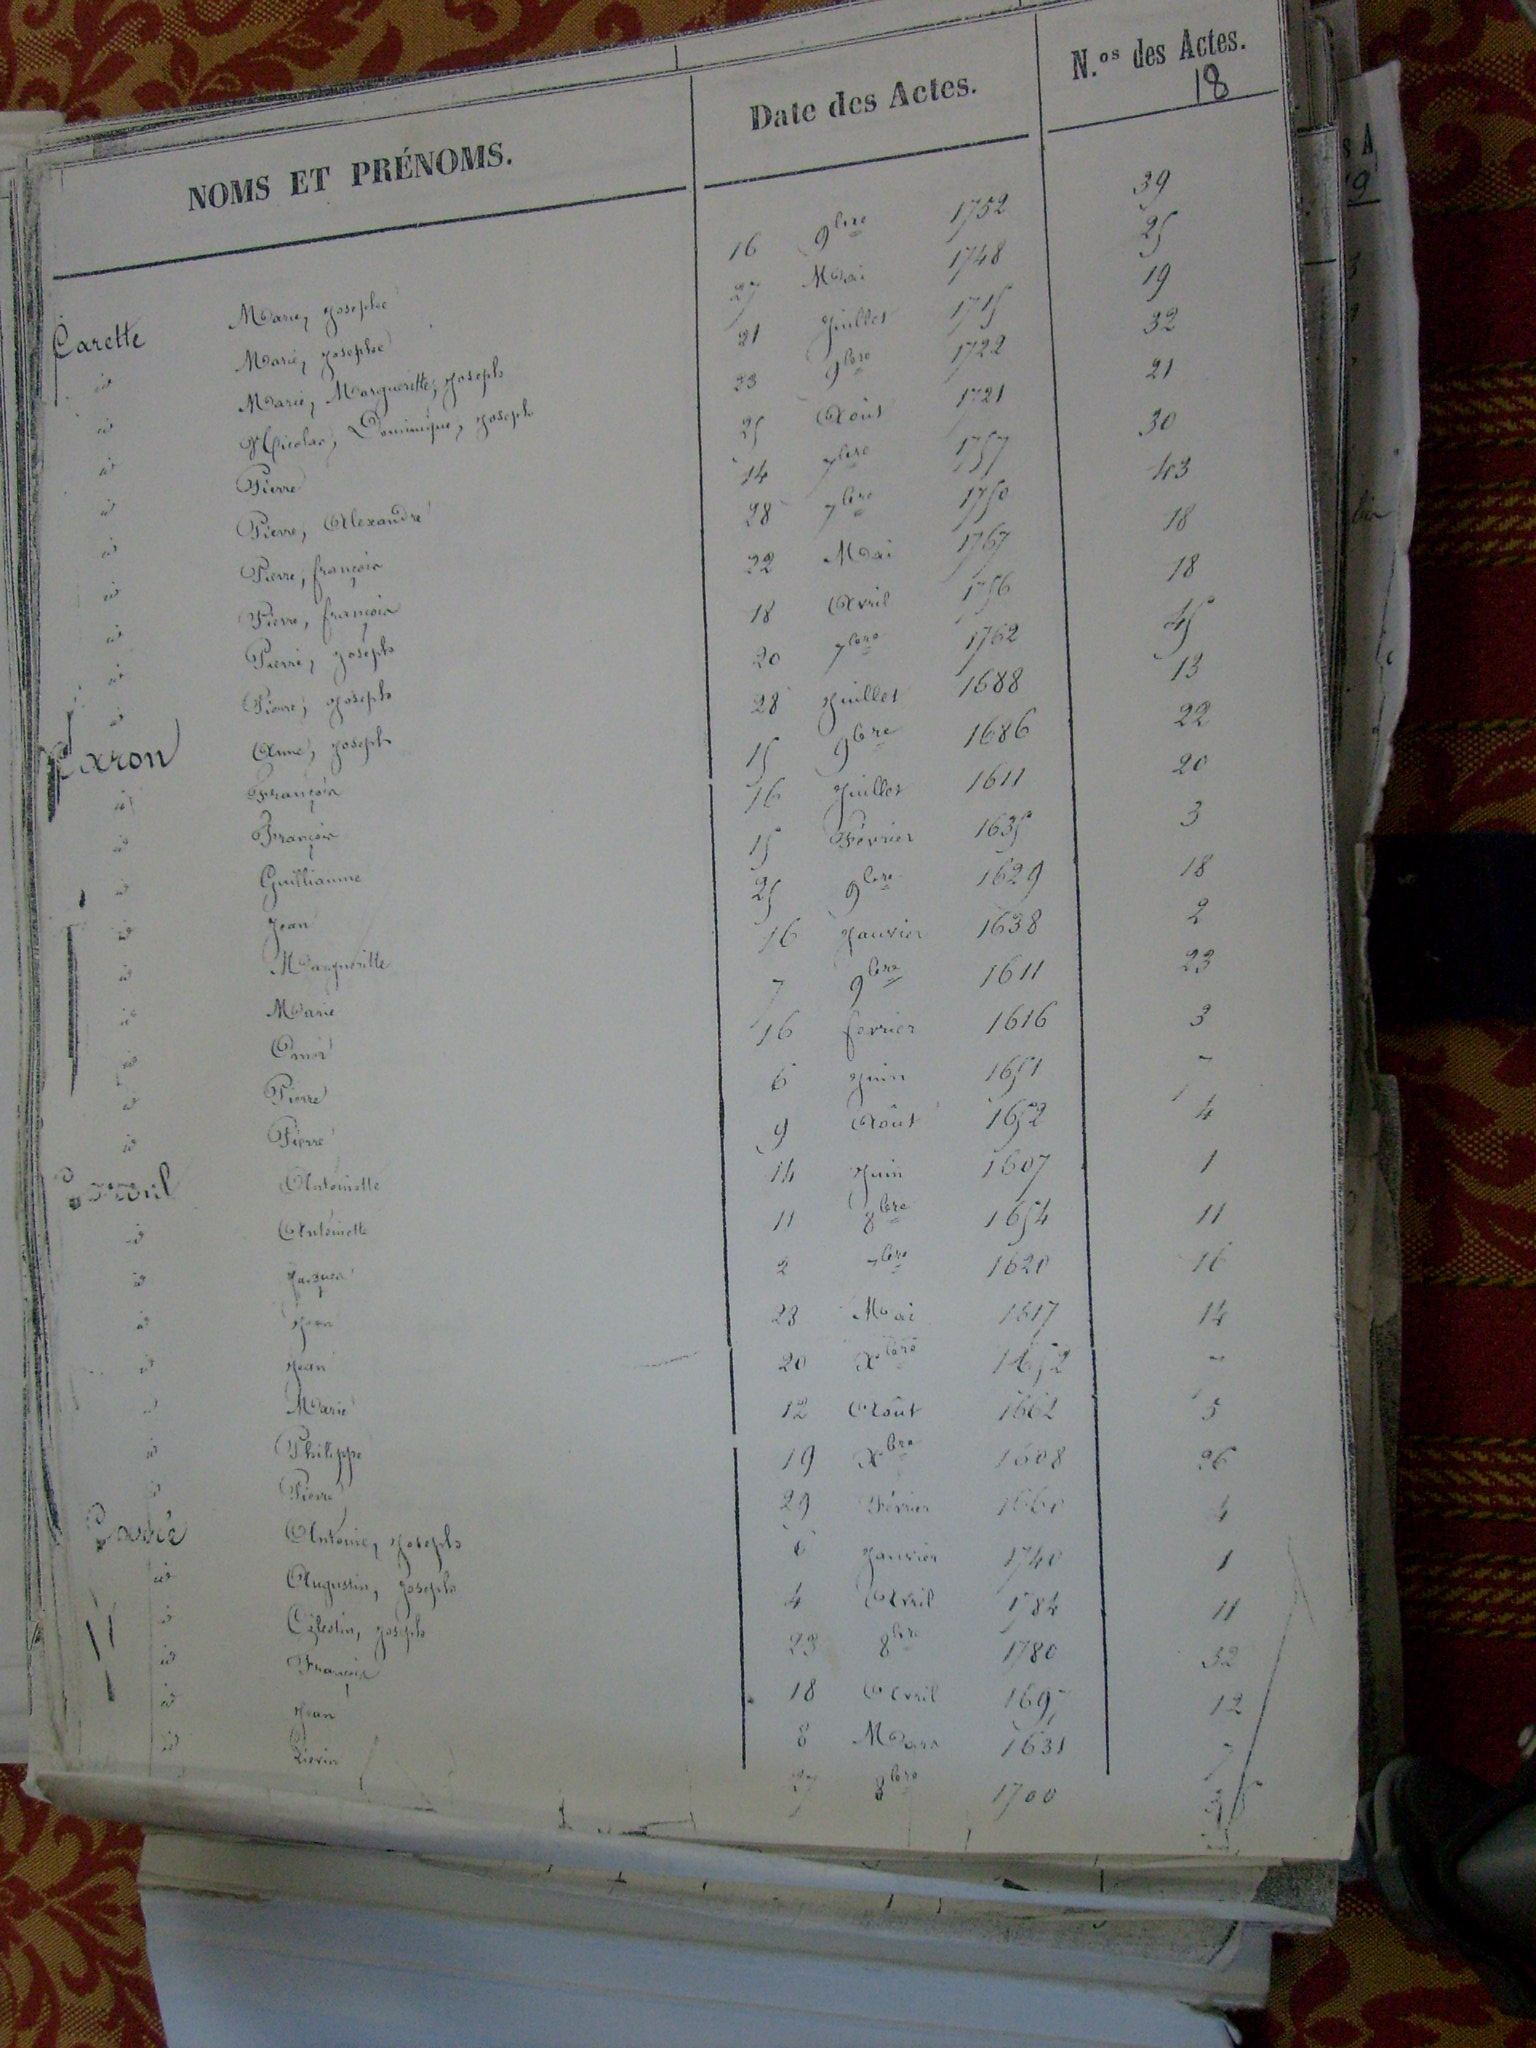 NOMS ET PRÉNOMS. Date des Actes. N.os des Actes.
18
Carette Marie, Josephe 16 9bre 1752 39
id Marie, Josephe 27 Mai 1748 25
id Marie, Margueritte, Joseph 21 Juillet 1715 19
id Nicolas, Dominique, Joseph 23 9bre 1722 32
id Pierre 25 Août 1721 21
id Pierre, Alexandre 14 7bre 1757 30
id Pierre, françois 28 7bre 1750 43
id Pierre, françois 22 Mai 1767 18
id Pierre, Joseph 18 Avril 1756 18
id Pierre, Joseph 20 7bre 1762 45
Caron Anne, Joseph 28 Juillet 1688 13
id François 15 9bre 1686 22
id François 16 Juillet 1611 20
id Guilliaume 15 Février 1635 3
id Jean 25 9bre 1629 18
id Margueritte 16 Janvier 1638 2
id Marie 7 9bre 1611 23
id Omer 16 fevrier 1616 3
id Pierre 6 Juin 1651 7
id Pierre 9 Août 1652 4
Antoinette 14 Juin 1607 1
id Antoinette 11 8bre 1654 11
id Jacques 2 7bre 1620 16
id Jean 23 Mai 1617 14
id Jean 20 Xbre 1652 7
id Marie 12 Août 1662 5
id Philippe 19 Xbre 1608 26
id Pierre 29 Février 1660 4
Antoine, Joseph 6 Janvier 1740 1
id Augustin, Joseph 4 Avril 1784 11
id Célestin, Joseph 23 8bre 1780 32
id François 18 Avril 1697 12
id Jean 8 Mars 1631 7
id Lievin 27 8bre 1700